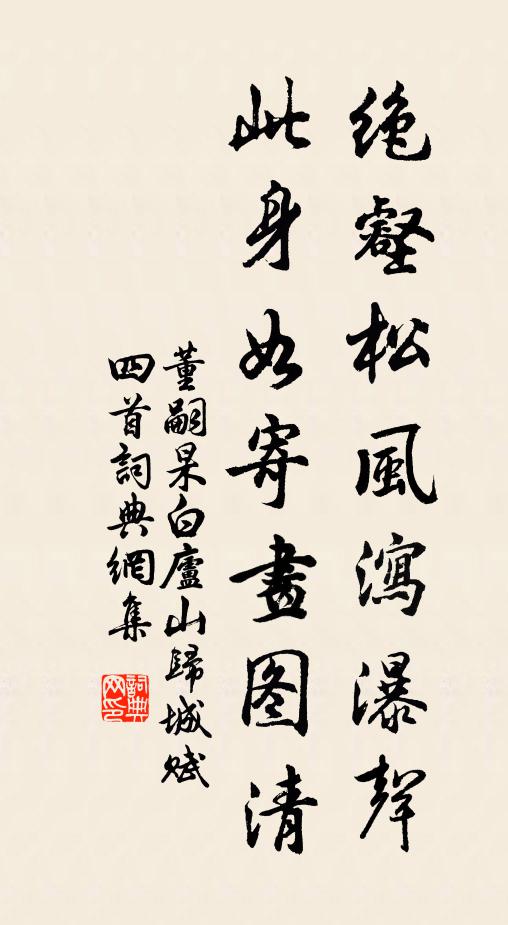 絶壑松風瀉瀑聲
此身如寄畫图清
董嗣杲白廬山歸城賦
四首詞典網集
詞典網印